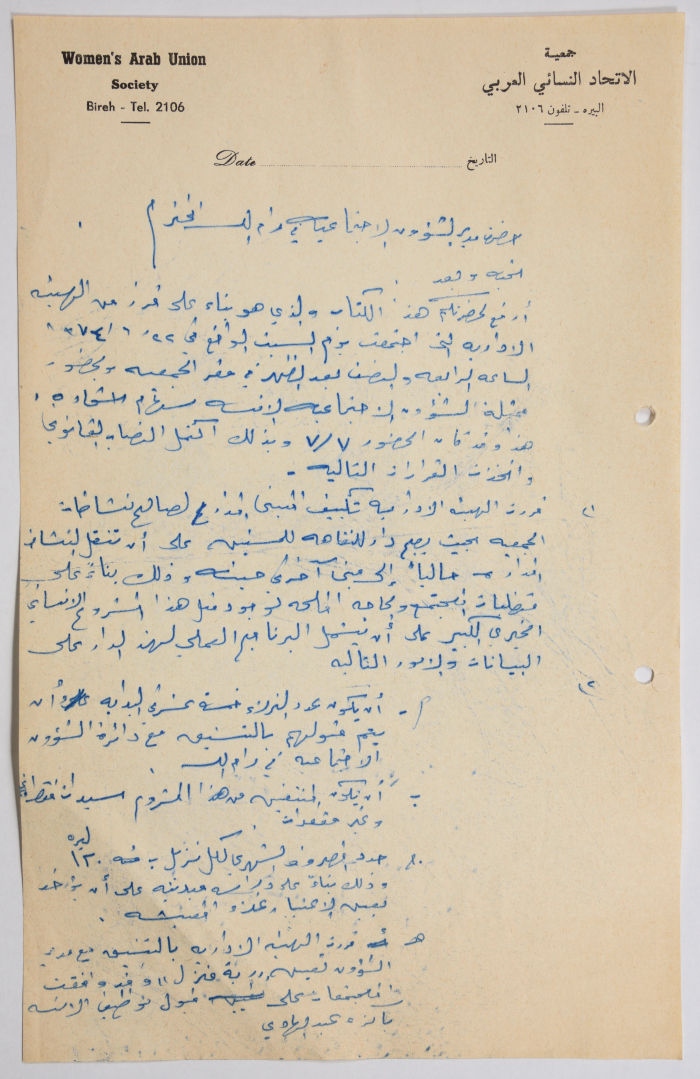 Women's Arab Union
Society
Bireh - Tel. 2106
جمعية
الاتحاد النسائي العربي
البيره - تلفون ٢١٠٦
Date التاريخ
حضرة مدير الشؤون الاجتماعيه في رام الله المحترم
تحيه وبعد
أرفع لحضرتكم هذا الكتاب والذي هو بناء على قرار من الهيئه
الاداريه التي اجتمعت يوم السبت الواقع في ٢٢/ ٦/
الساعه الرابعه والنصف بعد الظهر في مقر الجمعيه وبحضور
ممثلة الشؤون الاجتماعيه الانسه سهام
هذا وقد كان الحضور ٧/٧ وبذلك اكتمل النصاب القانوني
واتخذت القرارات التاليه -
١) قررت الهيئه الاداريه تكليف المبنى لصالح نشاطات
الجمعيه بحيث يصبح دار للنقاهه للمسنين على أن تنتقل نشاطات
الدار حالياً إلى مبنى آخر وذلك بناءً على
متطلبات المجتمع وبحاجه الملحه لوجود مثل هذا المشروع الانساني
الخيري الكبير على أن يشمل البرنامج العملي لهذه الدار على
البيانات والامور التاليه
٢)
أ - أن يكون عدد النزلاء خمسة عشر في البدايه وأن
يتم قبولهم بالتنسيق مع دائرة الشؤون
الاجتماعيه في رام الله
ب - أن يكون المنتفعين من هذا المشروع سيدات فقط
وغير مقعدات
حـ. حدد المصروف الشهري لكل نزيل ب ١٢٠ ليره
وذلك بناءً على دراسه ميدانيه على أن يؤخذ
بعين الاعتبار غلاء المعيشه .
هـ قررت الهيئه الاداريه بالتنسيق مع مدير
الشؤون تعيين ربة منزل وقد وافقت
على قبول توظيف الانسه
عبد الهادي